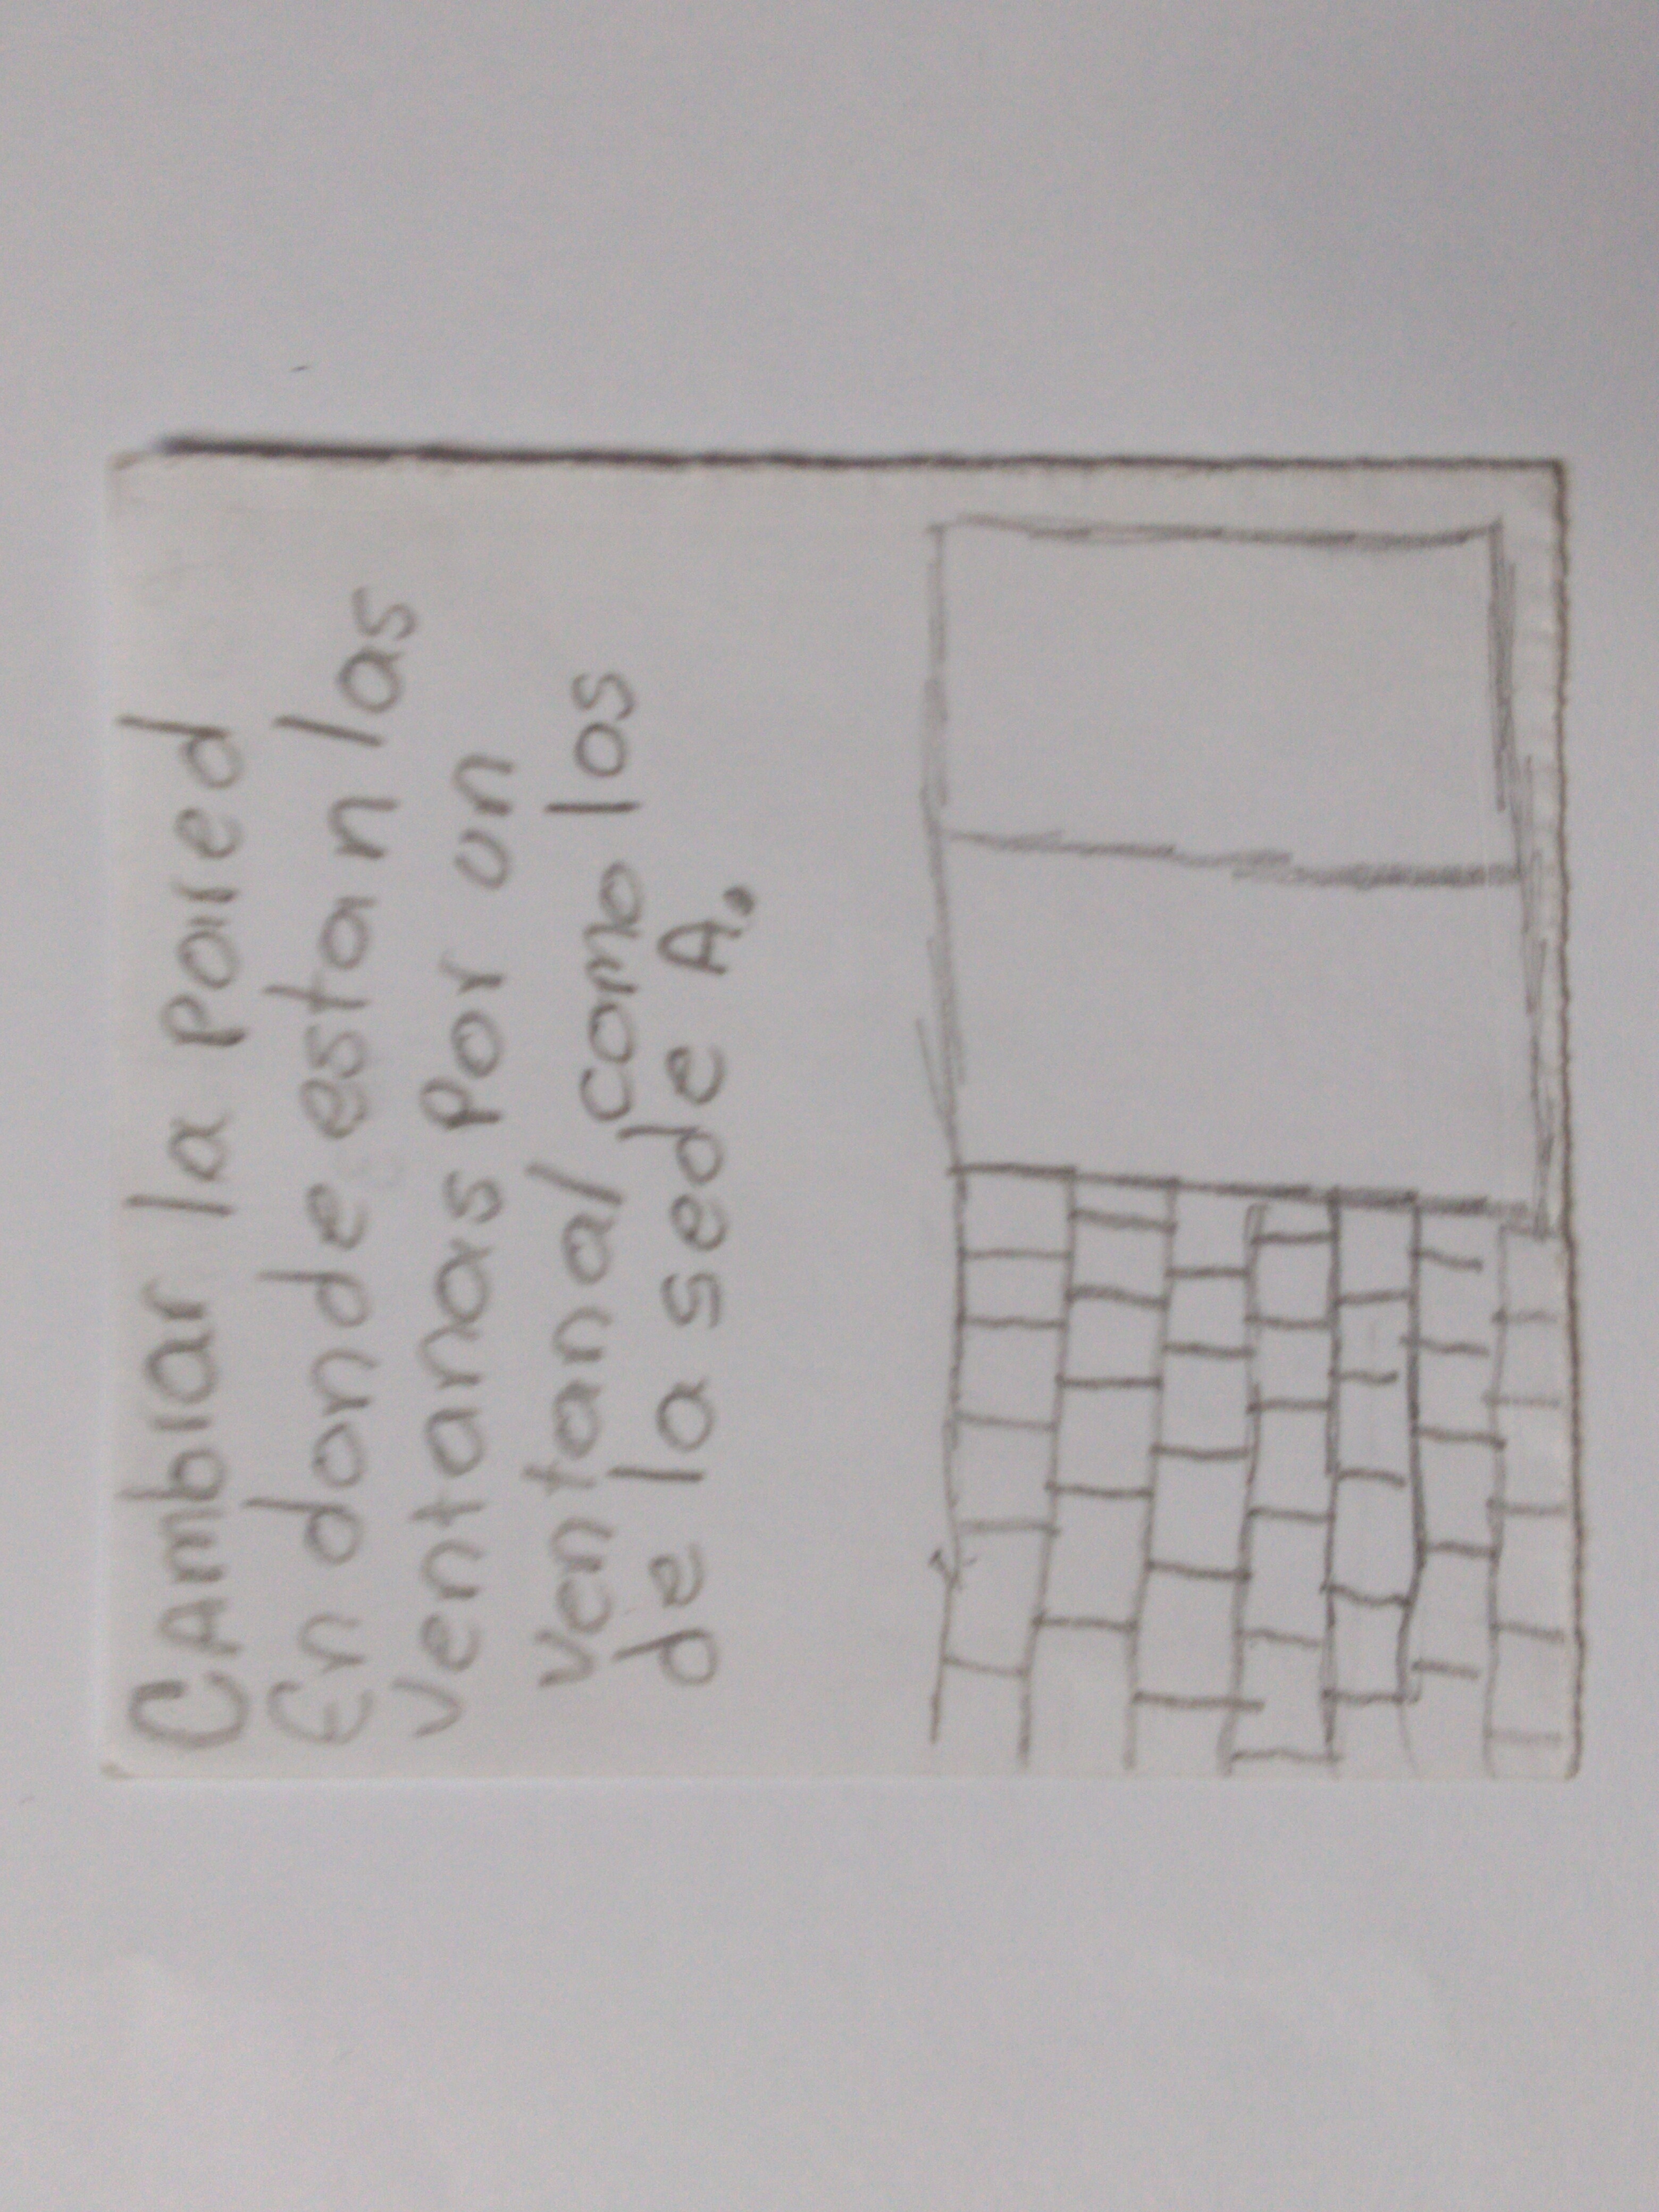 CAmbiar la pared
En donde estan las
ventanas Por un
ventanal como los
de la sede A.